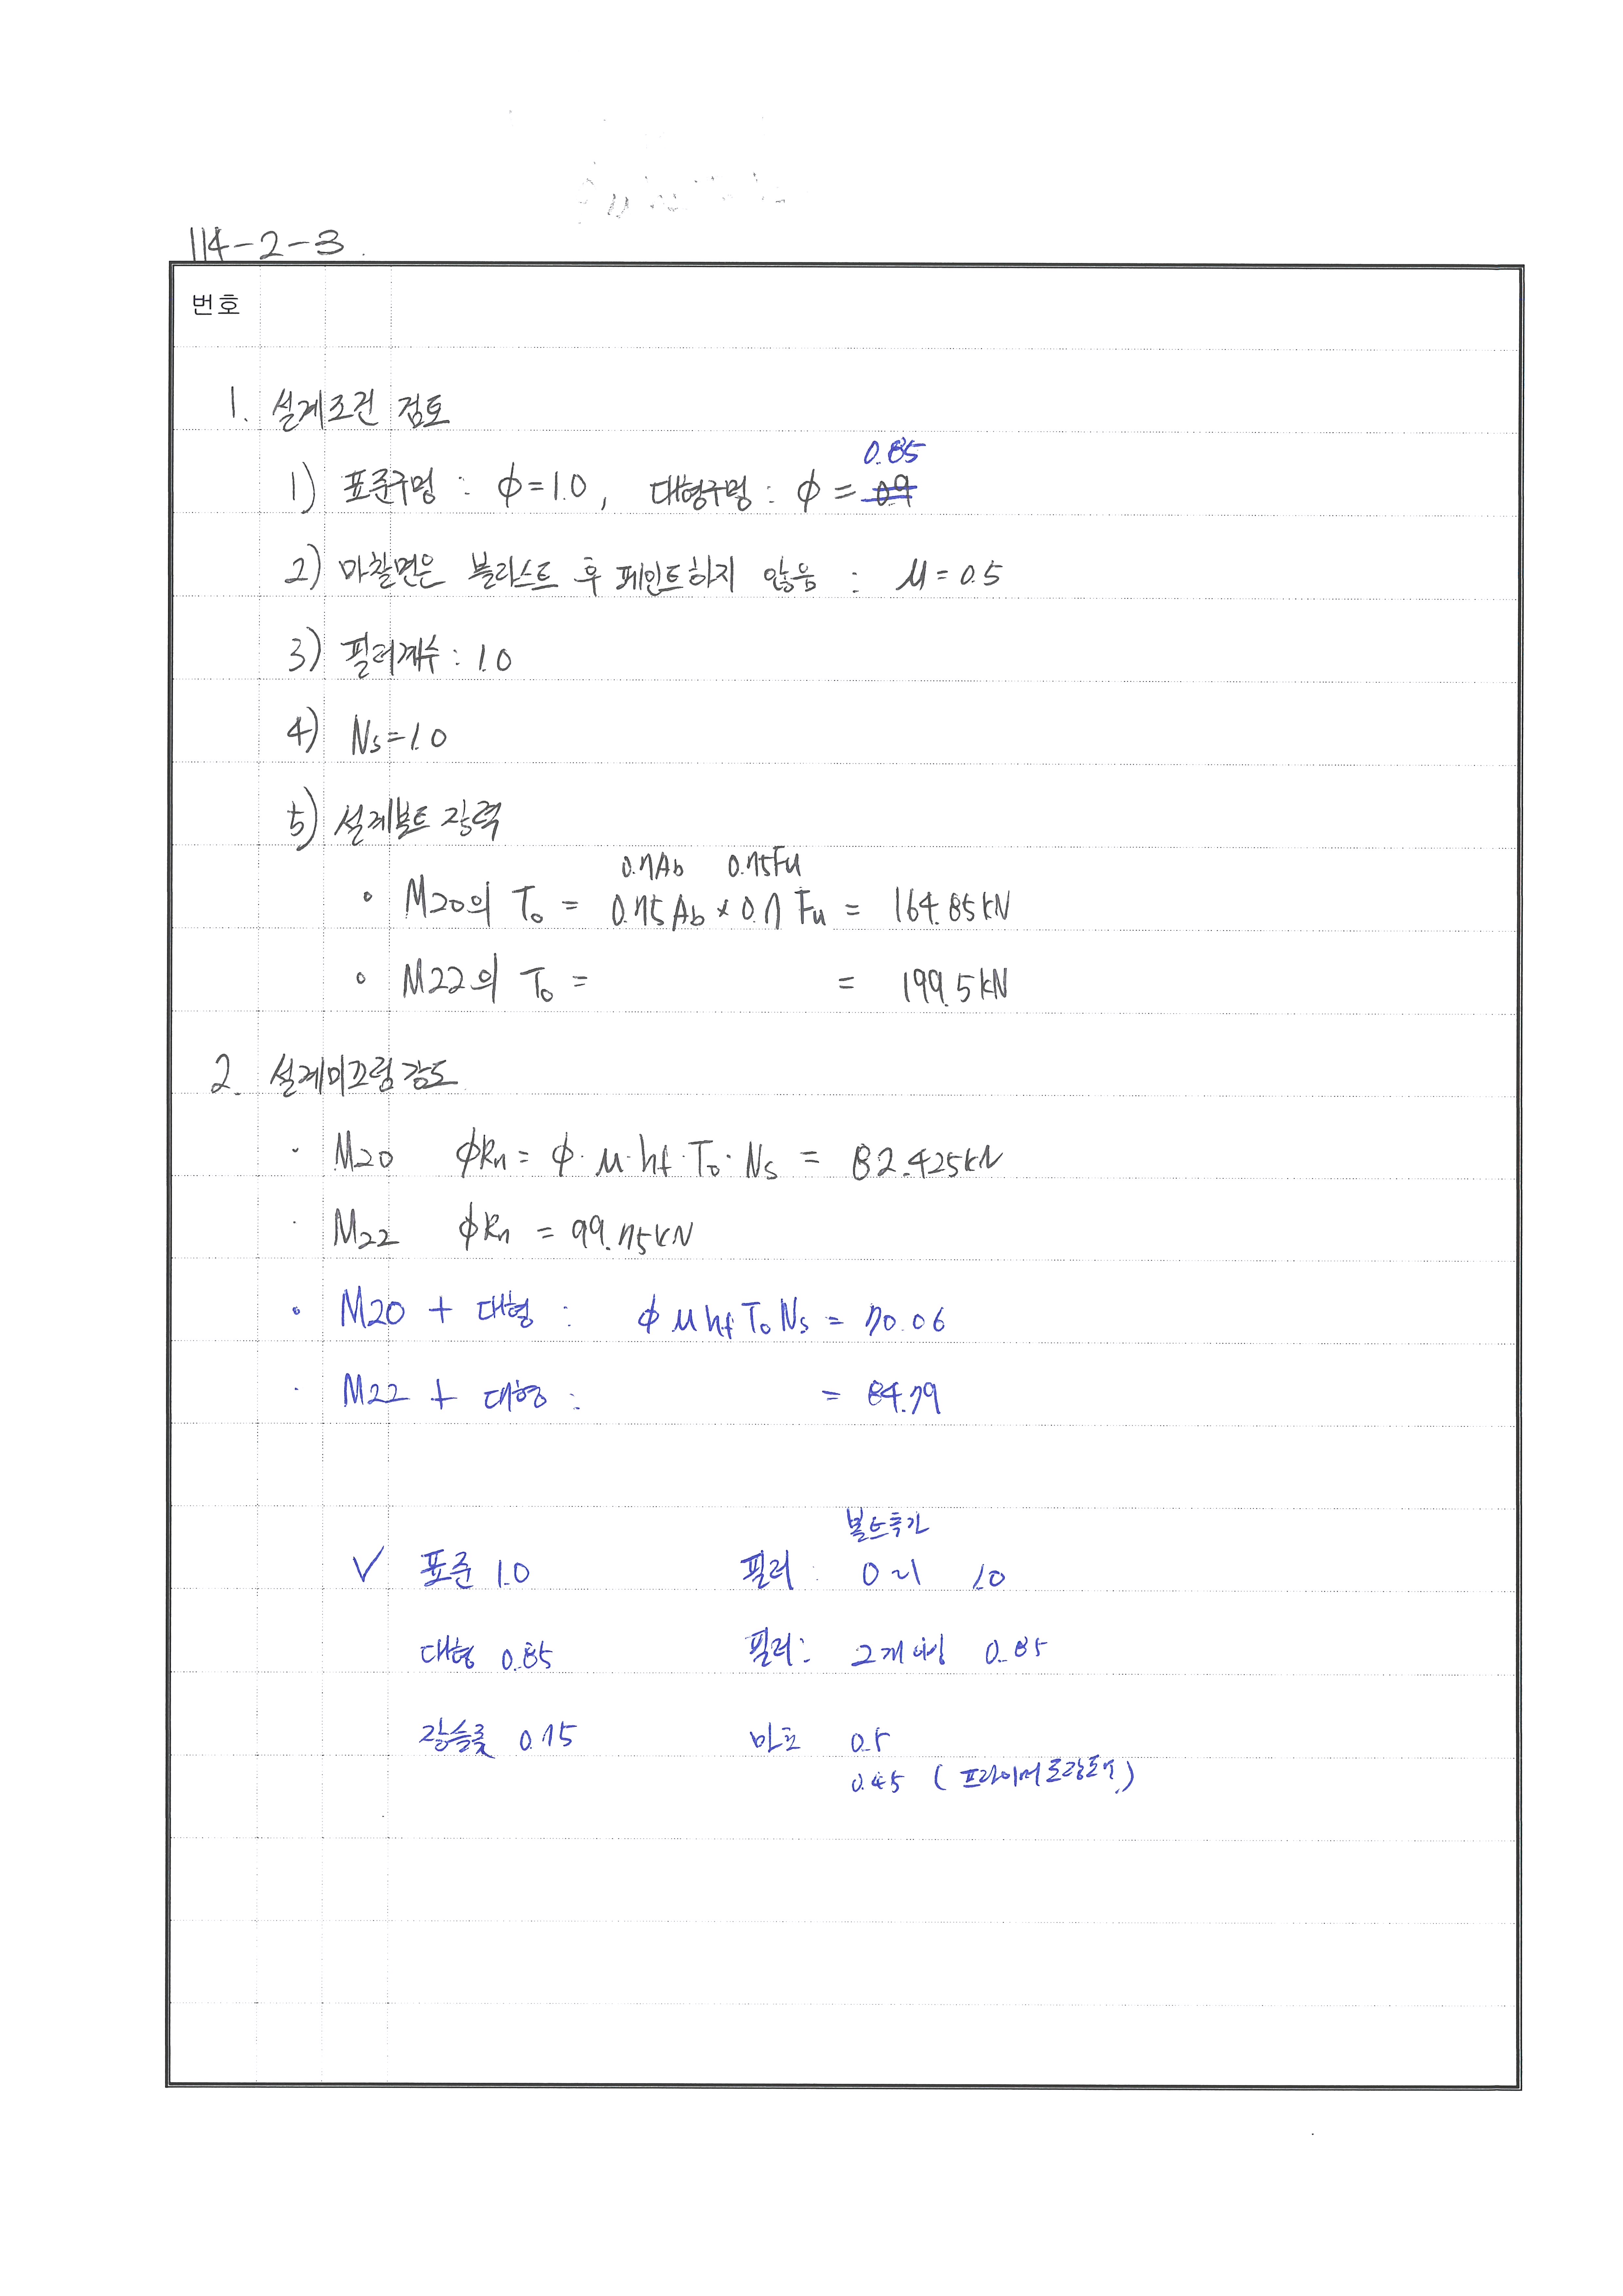 114-2-3.
번호
1. 설계조건 검토
0.85
1) 표준구멍 : ϕ=1.0, 대형구멍 : ϕ= 0.9
2) 마찰면은 블라스트 후 페인트하지 않음 : μ=0.5
3) 필러계수 : 1.0
4) Ns=1.0
5) 설계볼트장력
0.7Ab 0.75Fu
• M20의 To = 0.75Ab × 0.7Fu = 164.85kN
• M22의 To = = 199.5kN
2. 설계미끄럼강도
· M20 ϕRn = ϕ·μ·hf·To·Ns = 82.425kN
· M22 ϕRn = 99.75kN
• M20 + 대형 : ϕ μ hf To Ns = 70.06
· M22 + 대형 : = 84.79
볼트추가
✓ 표준 1.0 필러 : 0~1 1.0
대형 0.85 필러 : 2개 이상 0.85
장슬롯 0.75 0.5
0.45 (프라이머)